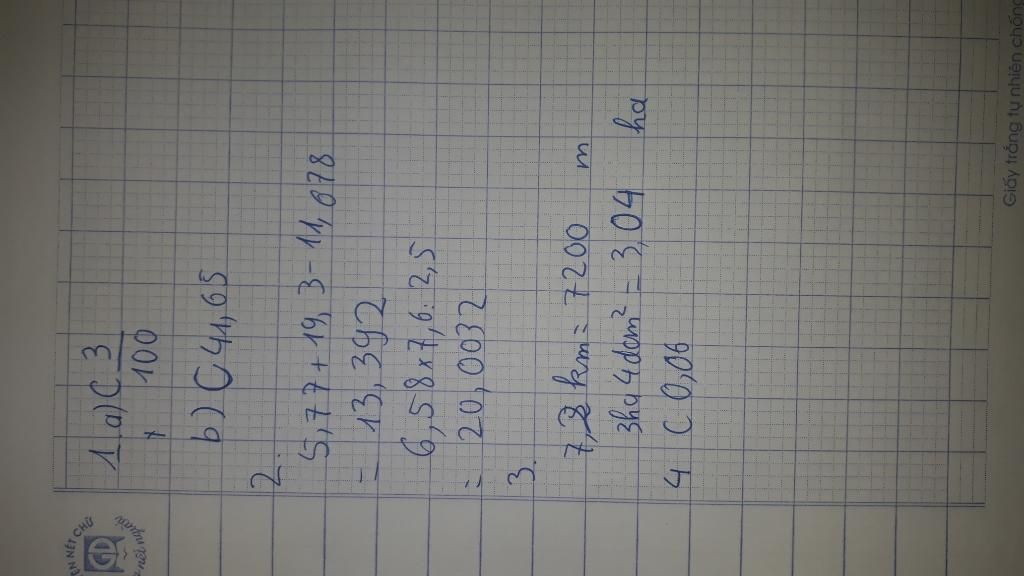 1.a) C 3/100
b) C 41,65
2.
5,77 + 19,3 - 11,678
= 13,392
6,58 x 7,6 : 2,5
= 20,0032
3.
7,2 km = 7200 m
3ha 4dam² = 3,04 ha
4 C 0,06
Giấy trắng tự nhiên chống
ỆN NÉT CHỮ
GĐ
nết người